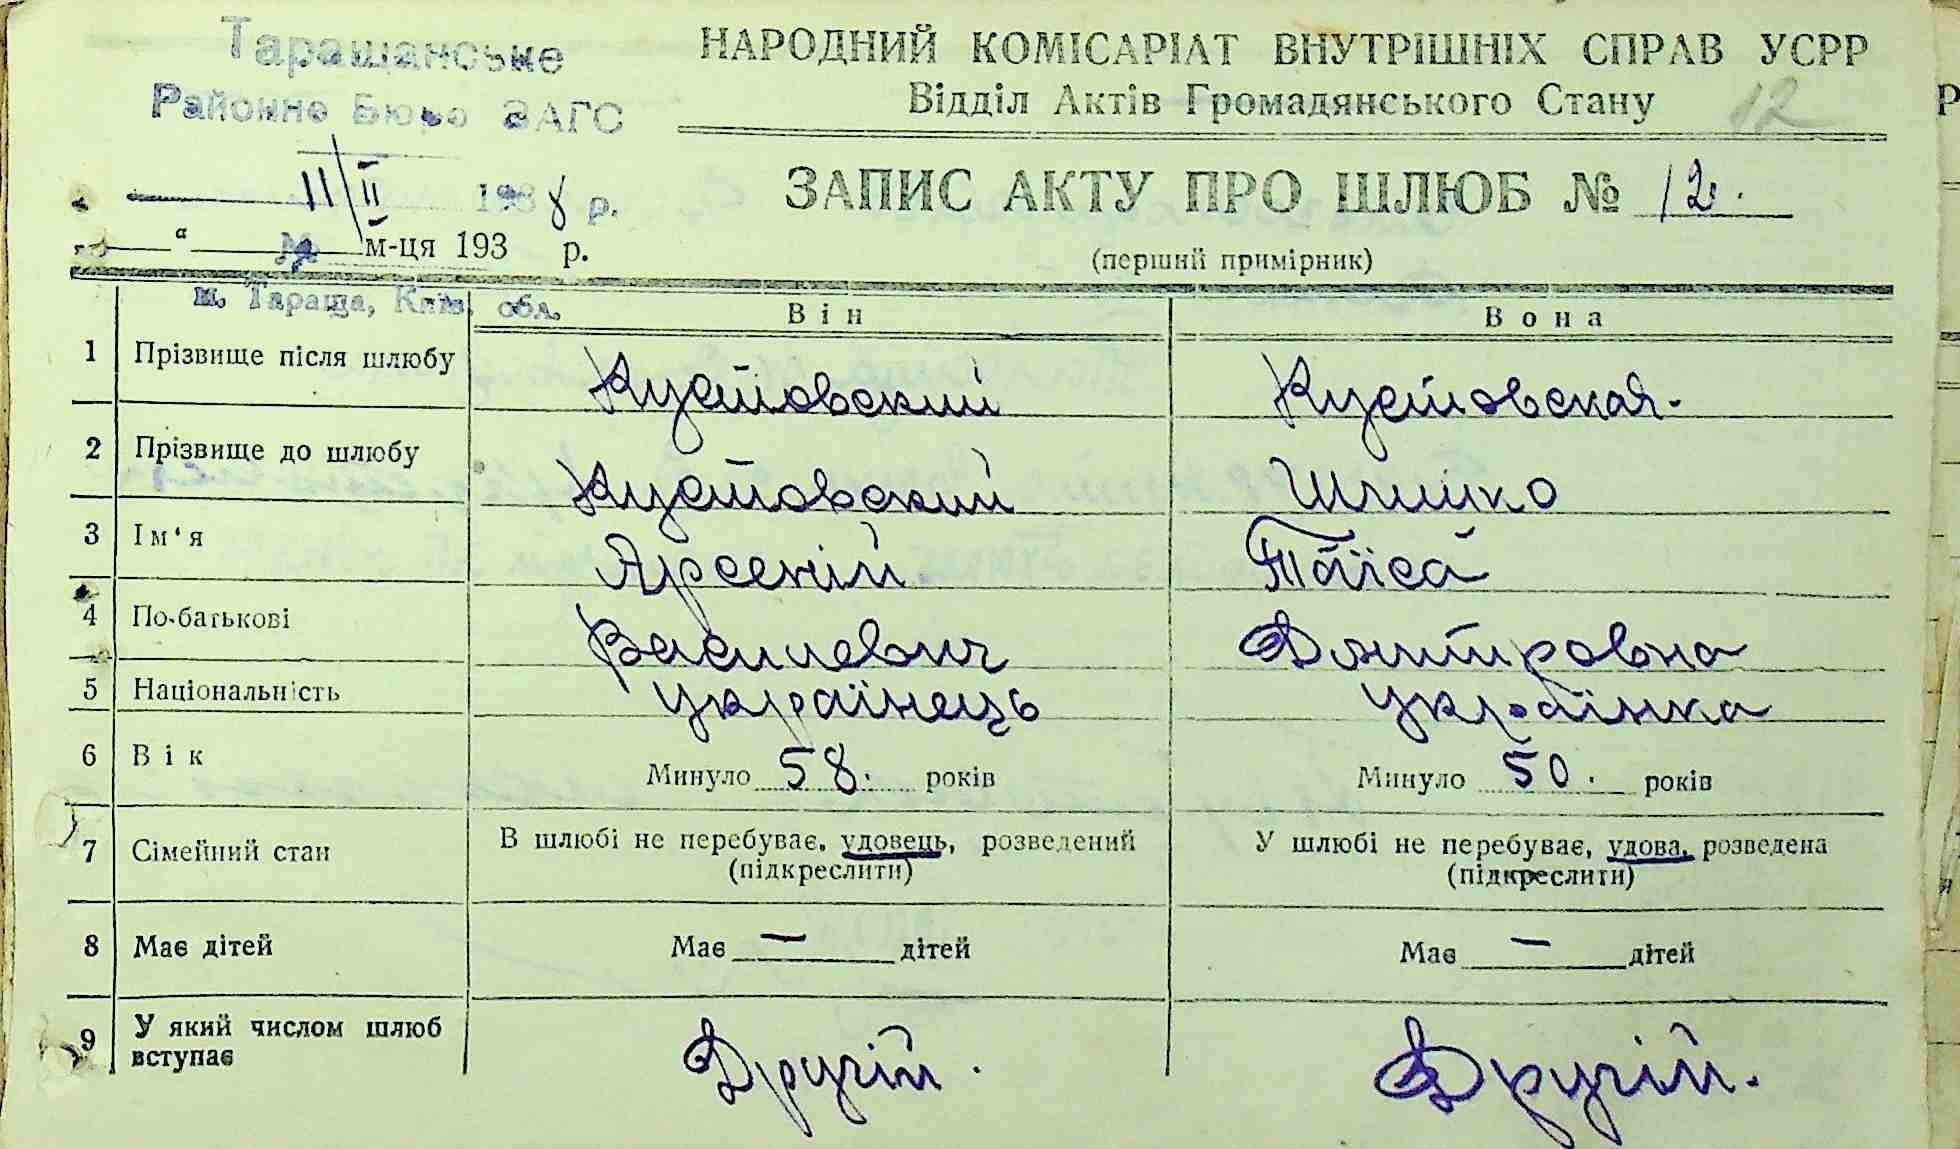 Таращанське
Районне Бюро ЗАГС
11/II 1938 р.
"
м-ця 193 р.
м. Тараща, Київ. обл.
НАРОДНИЙ КОМІСАРІАТ ВНУТРІШНІХ СПРАВ УСРР
Відділ Актів Громадянського Стану
12
ЗАПИС АКТУ ПРО ШЛЮБ № 12.
(перший примірник)
Він Вона
1 Прізвище після шлюбу Кустовский Кустовская.
2 Прізвище до шлюбу Кустовский Шпишко
3 Ім'я Арсеній Таїса
4 По-батькові Василевич Дмитровна
5 Національність українець українка
6 Вік Минуло 58. років Минуло 50. років
7 Сімейний стан В шлюбі не перебуває, удовець, розведений У шлюбі не перебуває, удова, розведена
(підкреслити) (підкреслити)
8 Має дітей Має — дітей Має — дітей
9 У який числом шлюб
вступає Другій. Другій.